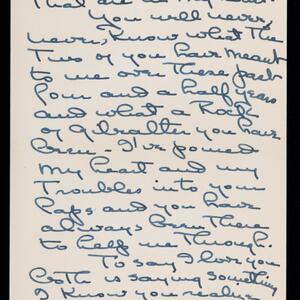 That are in my heart.
You will never,
never, know what the
Two of you have meant
to me over these past
four and a half years
and what a Rock
of Gibralter you have
been - I've poured
my heart and my
Troubles into your
laps and you have
always been there
to help me through.
To say I love you
both is saying something
I know you realize